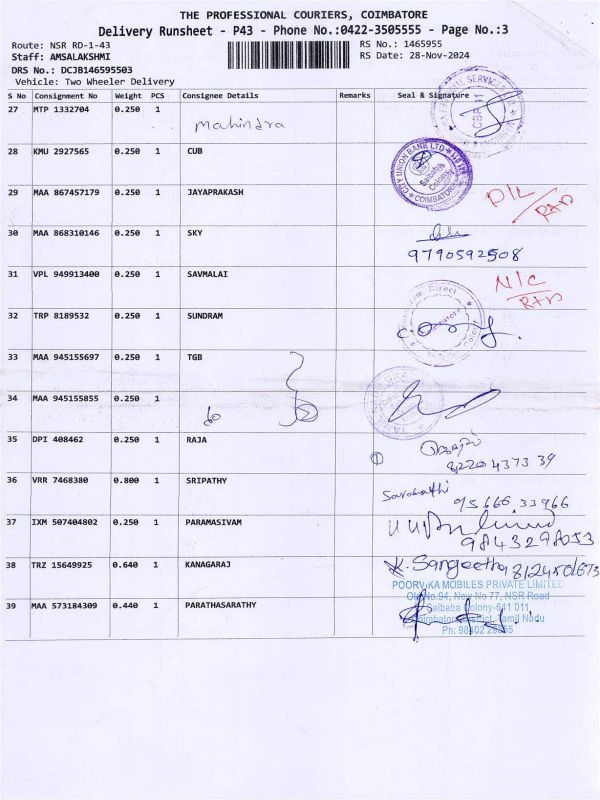 THE PROFESSIONAL COURIERS, COIMBATORE
Delivery Runsheet - P43 - Phone No.:0422-3505555 - Page No.:3
Route: NSR RD-1-43 RS No.: 1465955
Staff: AMSALAKSHMI RS Date: 28-Nov-2024
DRS No.: DCJB146595503
Vehicle: Two Wheeler Delivery
S No Consignment No Weight PCS Consignee Details Remarks Seal & Signature
27 MTP 1332704 0.250 1 Mahindra
28 KMU 2927565 0.250 1 CUB CITY UNION BANK LTD Saibaba Colony COIMBATORE
29 MAA 867457179 0.250 1 JAYAPRAKASH D/L
RTD
30 MAA 868310146 0.250 1 SKY
9790592508
31 VPL 949913400 0.250 1 SAVMALAI N/C
RTD
32 TRP 8189532 0.250 1 SUNDRAM Direct
33 MAA 945155697 0.250 1 TGB
34 MAA 945155855 0.250 1 do
35 DPI 408462 0.250 1 RAJA 1
8220437339
36 VRR 7468380 0.800 1 SRIPATHY
95666.33966
37 IXM 507404802 0.250 1 PARAMASIVAM
9843298053
38 TRZ 15649925 0.640 1 KANAGARAJ K. Sangeetha
39 MAA 573184309 0.440 1 PARATHASARATHY
POORVIKA MOBILES PRIVATE LIMITED
Old No.94, New No 77, NSR Road
Saibaba Colony-641 011
Coimbatore District, Tamil Nadu
Ph: